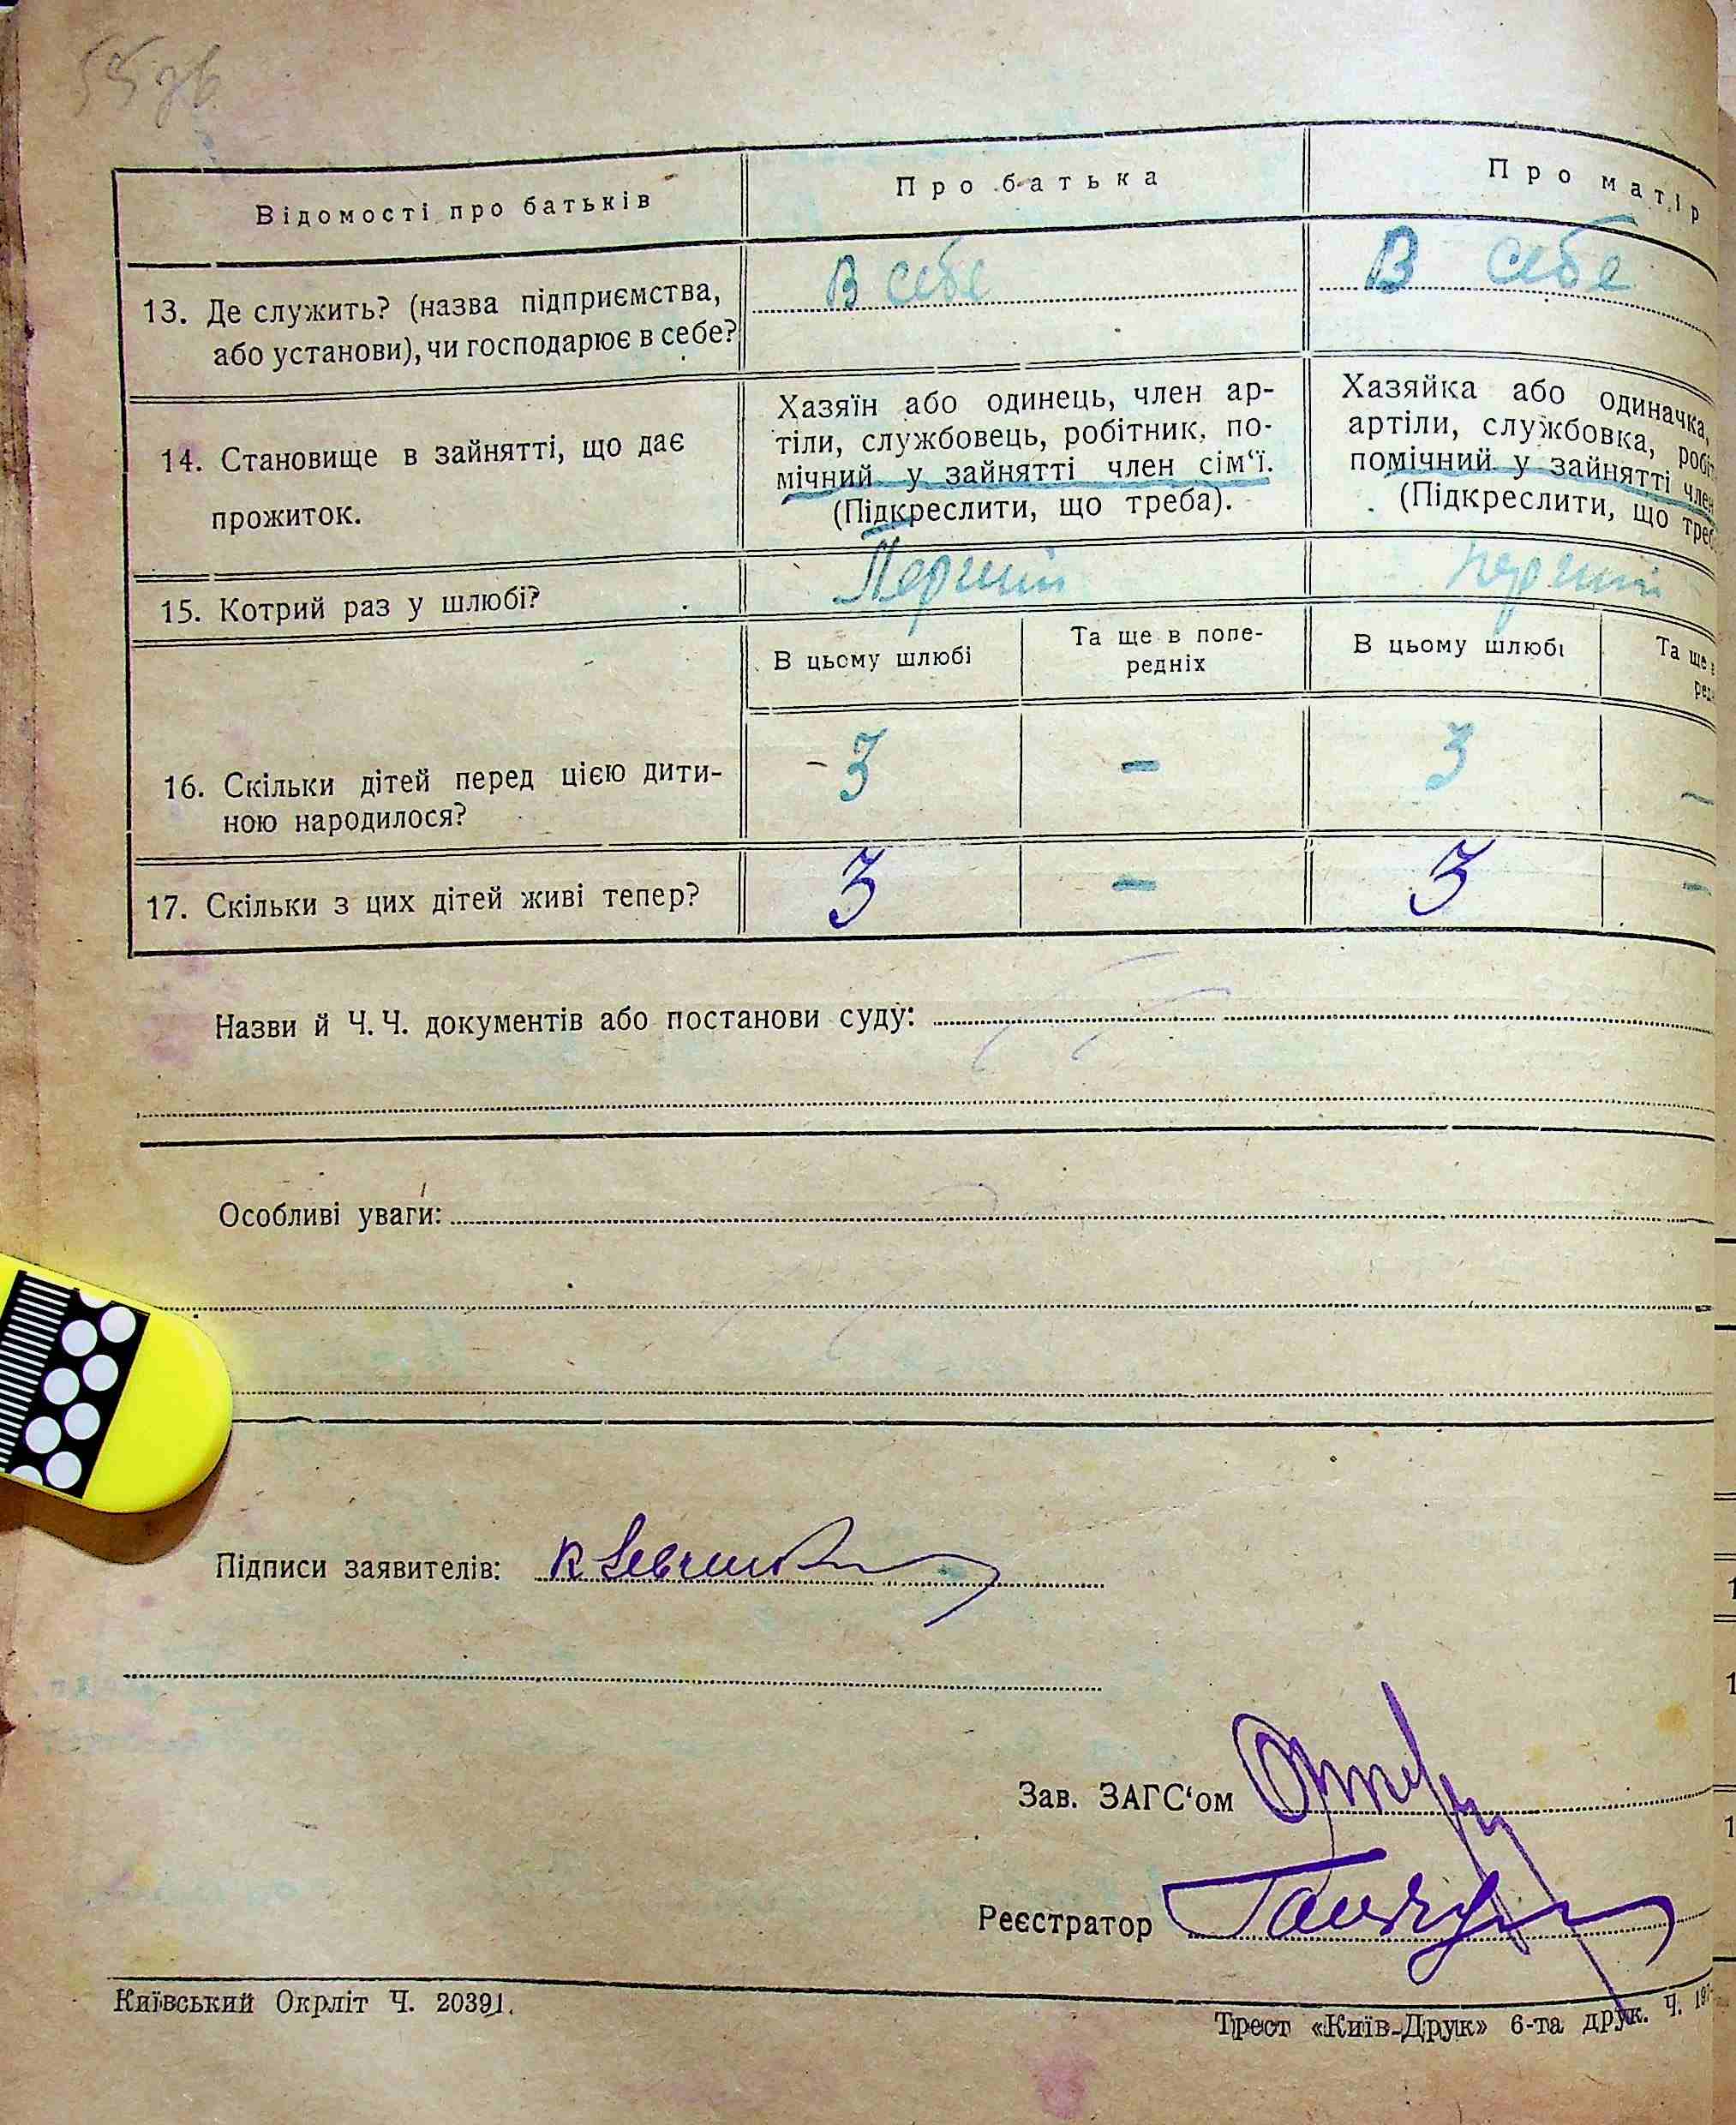 55 зв
Відомості про батьків
Про батька
Про матір
13. Де служить? (назва підприємства,
або установи), чи господарює в себе?
В себе
В себе
14. Становище в зайнятті, що дає
прожиток.
Хазяїн або одинець, член ар-
тіли, службовець, робітник, по-
мічний у зайнятті член сім‘ї.
(Підкреслити, що треба).
Хазяйка або одиначка,
артіли, службовка, робіт
помічний у зайнятті член
(Підкреслити, що треб
15. Котрий раз у шлюбі?
Перший
перший
В цьому шлюбі
Та ще в попе-
редніх
В цьому шлюбі
Та ще в
ред
16. Скільки дітей перед цією дити-
ною народилося?
3
-
3
-
17. Скільки з цих дітей живі тепер?
3
-
3
-
Назви й Ч. Ч. документів або постанови суду:
Особливі уваги:
Підписи заявителів:
Зав. ЗАГС‘ом
Реєстратор
Київський Окрліт Ч. 20391.
Трест «Київ-Друк» 6-та друк. Ч.